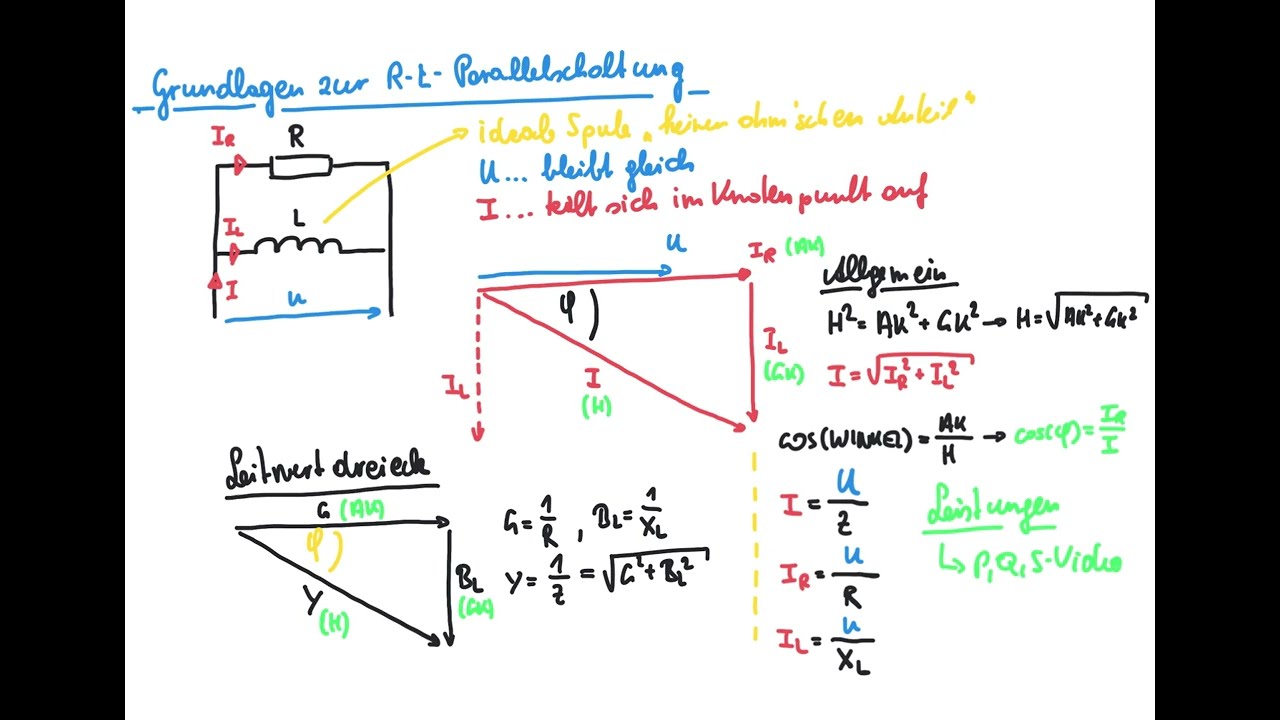 Grundlagen zur R-L-Parallelschaltung
I_R R
ideale Spule „keinen ohm'schen Anteil"
U... bleibt gleich
I... teilt sich im Knotenpunkt auf
I_L L
I
U
U
I_R (AK)
φ
I_L
I_L
(GK)
I
(H)
Allgemein
H² = AK² + GK² → H = √(AK² + GK²)
I = √(I_R² + I_L²)
cos(WINKEL) = AK/H → cos(φ) = I_R/I
I = U/Z
I_R = U/R
I_L = U/X_L
Leistungen
↳ P, Q, S-Video
Leitwertdreieck
G (AK)
φ
B_L
(GK)
Y
(H)
G = 1/R , B_L = 1/X_L
Y = 1/Z = √(G² + B_L²)